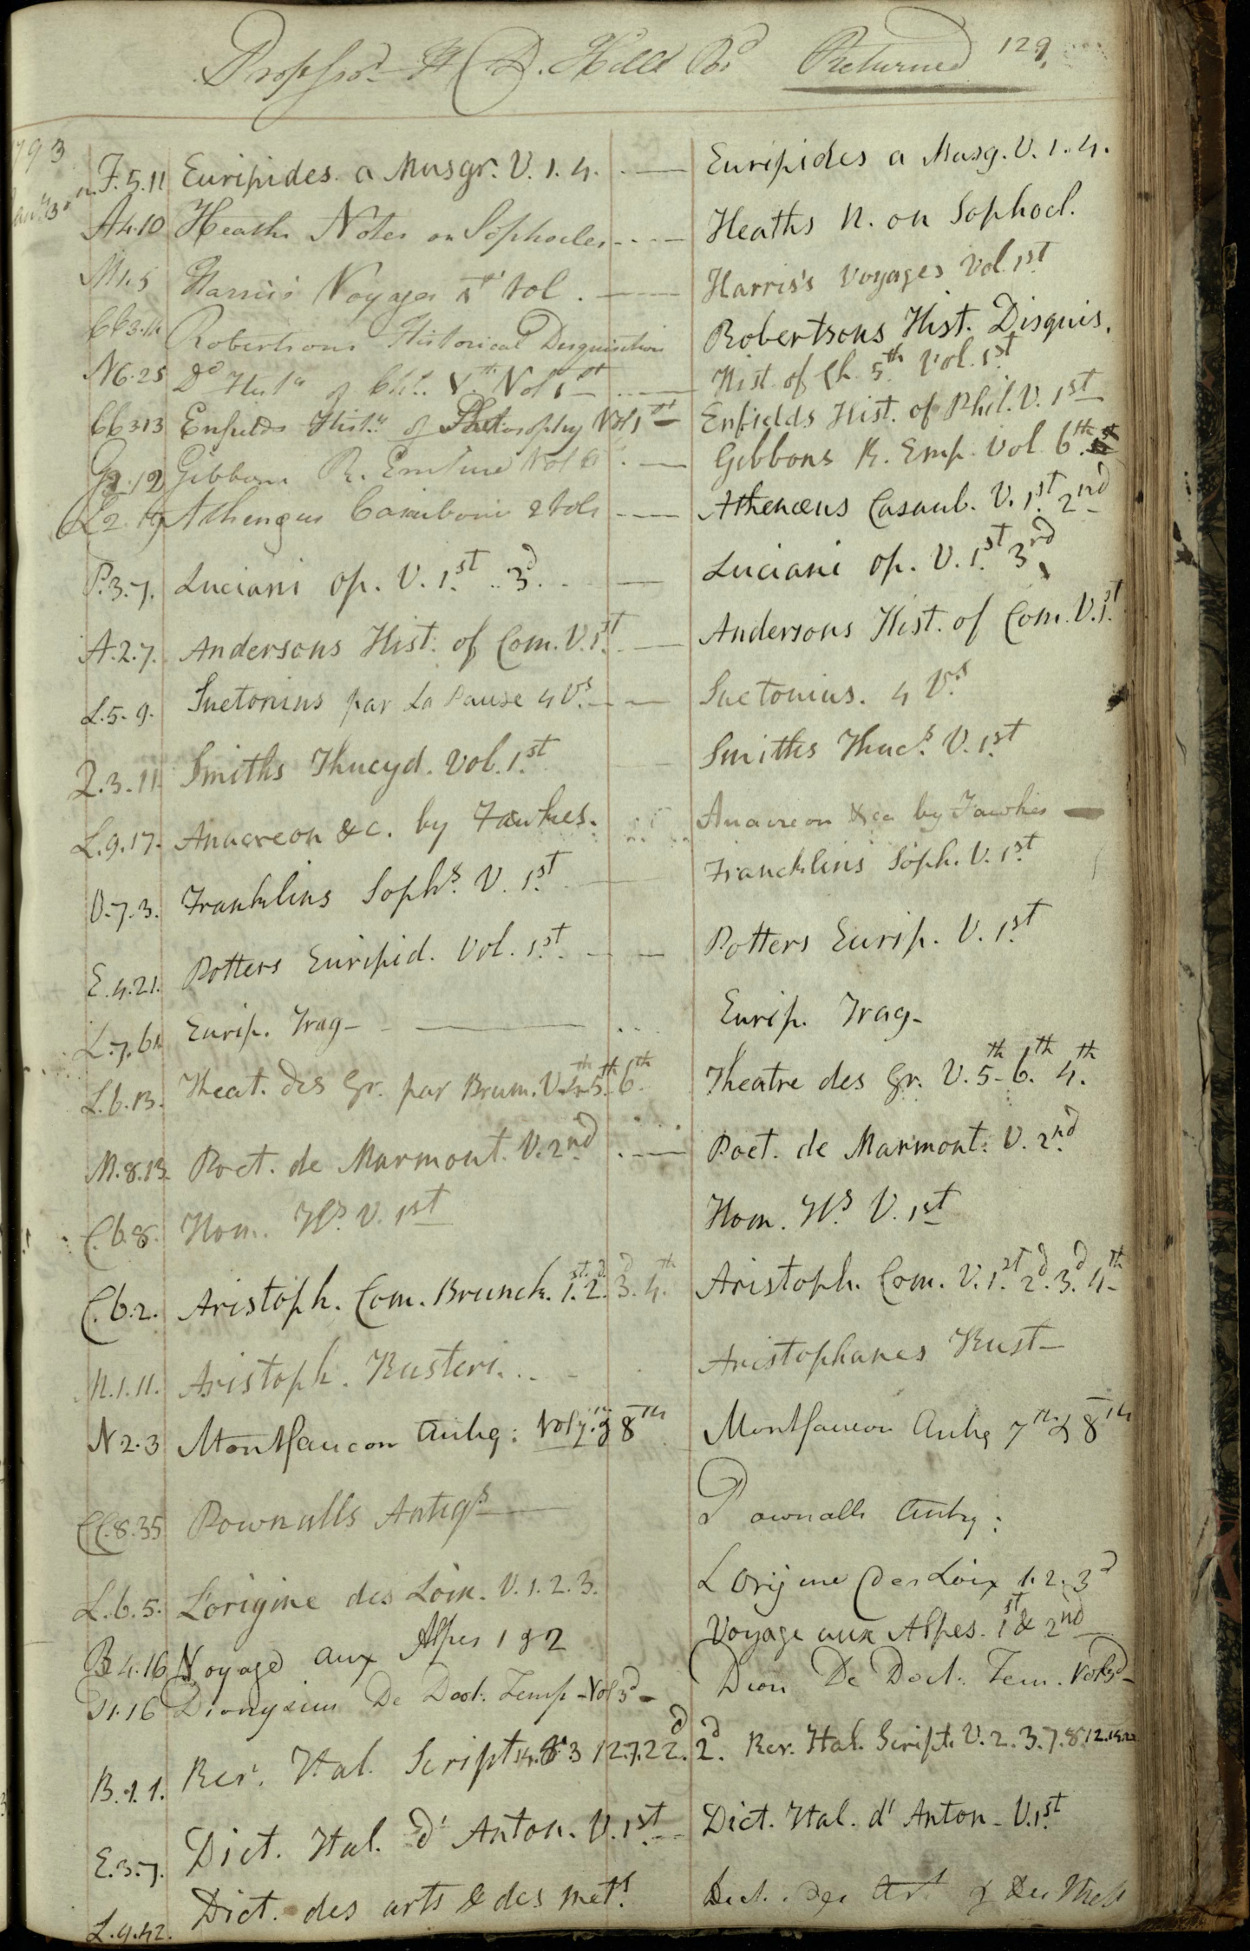 Professr H. D. Hill Bd Returned 129.
1793
F.5.11 Euripides a Musgr. V. 1. 4. Euripides a Musg. V. 1. 4.
A4.10 Heaths Notes on Sophocles Heaths N. on Sophocl.
M1.5 Harris's Voyages 1st Vol. Harris's Voyages Vol. 1st
Robertsons Historical Disquisition Robertsons Hist. Disquis.
N6.25 Do Histy of Ch: Vth Vol 1st Hist. of Ch. 5th Vol. 1st
CC3.13 Enfields Histy of Philosophy Vol 1st Enfields Hist. of Phil. V. 1st
G2.12 Gibbons R. Empire Vol 6 Gibbons R. Emp. Vol. 6th
L2.19 Athengus Casauboni 2 Vols Athenæus Casaub. V. 1st 2nd
P.3.7. Luciani op. V. 1st 3d Luciani op. V. 1st 3rd
A.2.7. Andersons Hist. of Com. V. 1st Andersons Hist. of Com. V. 1st
L.5.9. Suetonius par La Pause 4 Vs. Suetonius. 4 Vs.
Q.3.11. Smiths Thucyd. Vol. 1st Smiths Thucs. V. 1st
L.9.17. Anacreon &c. by Fawkes. Anacreon &ca by Fawkes
O.7.3. Franklins Sophs. V. 1st Francklins Soph. V. 1st
E.4.21. Potters Euripid. Vol. 1st. Potters Eurip. V. 1st
Eurip. Trag- Eurip. Trag-
L.6.13. Theat. des Gr. par Brum. V. 4th 5th 6th Theatre des Gr. V. 5th 6th 4th
M.8.13. Poet. de Marmont. V. 2nd Poet. de Marmont. V. 2nd
C.6.8. Hom. Ws. V. 1st Hom. Ws. V. 1st
C.6.2. Aristoph. Com. Brunck. 1st. 2d 3d 4th Aristoph. Com. V. 1st 2d 3d 4th
M.1.11. Aristoph. Kusteri. Aristophanes Kust-
N2.3 Montfaucon Antiq: Vol 7th & 8th Montfaucon Antiq 7th & 8th
CC.8.35 Pownalls Antiqs Pownalls Antiq:
L.6.5. L'origine des Loix. V. 1. 2. 3. L Origine des Loix 1. 2. 3d
B4.16 Voyage aux Alpes 1 & 2 Voyage aux Alpes. 1st & 2nd
Dionysius De Doct: Temp- Vol 3d- Dion De Doct: Tem. Vol 3d-
B.1.1. Rer. Ital. Script 2d. Rer. Ital. Script. V. 2. 3. 7. 8. 12.
E.3.7. Dict. Ital. d' Anton. V. 1st Dict. Ital. d' Anton- V. 1st
L.9.42. Dict. des arts & des mets. Dict. des Arts & des Mets